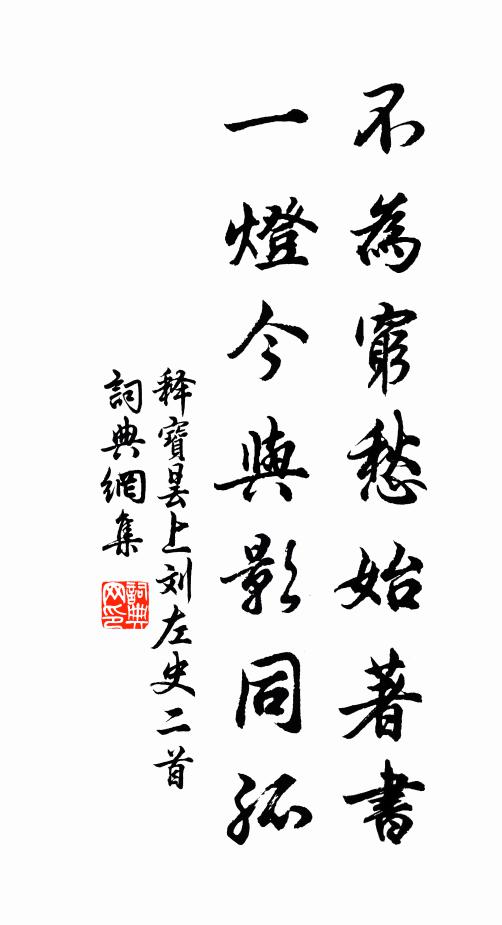 不為窮愁始著書
一燈今與影同孤
释寶曇上刘左史二首
詞典網集
詞典网印